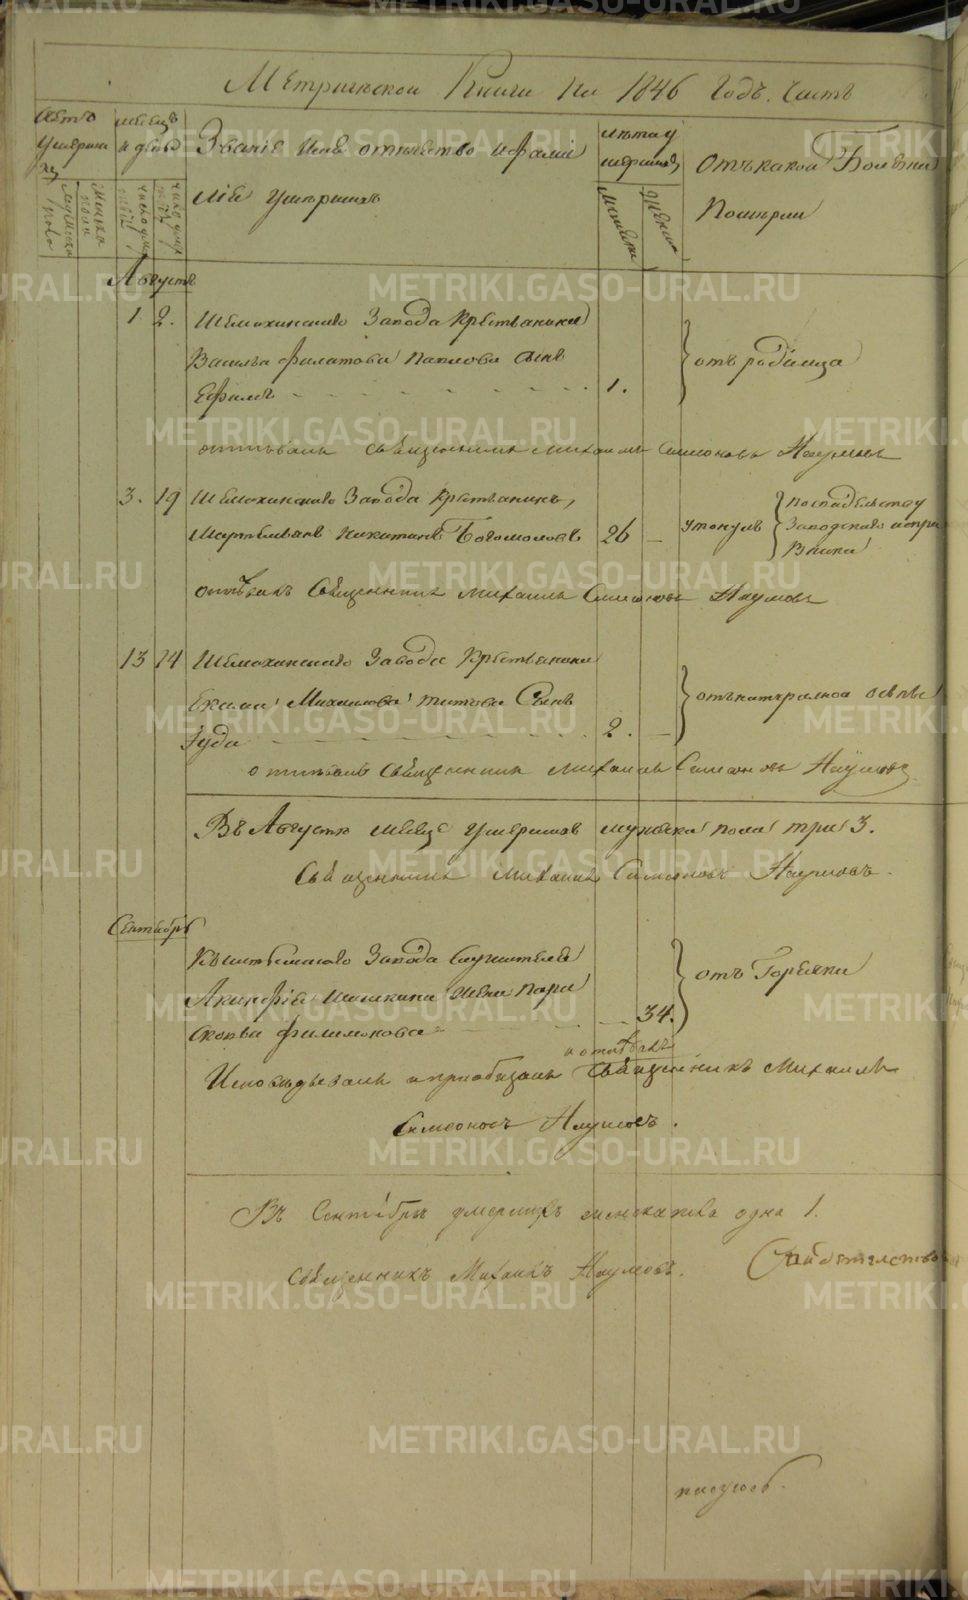 METRIKI.GASO-URAL.RU
Метрической Книги на 1846 Годъ. Часть
Счетъ умершихъ
месецъ и день
Званіе Имя отчество и фамилія умершихъ
лета умершихъ
Отъ какой Болезни Померли
мужеска пола
женска пола
Августъ
1 2. Шемахинского Завода Крестьянина
Василья Филатова Павлова сынъ
Ефимъ 1. отъ родимца
отпевалъ священникъ Михаилъ Симеоновъ Наумовъ
3. 19 Шемахинского Завода Крестьянинъ,
Никитинъ Богомоловъ 26 утонулъ
Заводского
отпевалъ Священникъ Михаилъ Симеоновъ Наумовъ
13 14 Шемахинского Завода Крестьянина
Михаилова Титова Сынъ
Іуда 2. отъ натуралной оспы
отпевалъ Священникъ Михаилъ Симеоновъ Наумовъ
Въ Августе месеце умершихъ мужеска пола три 3.
Священникъ Михаилъ Симеоновъ Наумовъ.
Сентябрь
Кыштымского Завода Служителя
Акинфія жена Пара
скова Филимонова 34. отъ Горячки
и отпевалъ
Исповедывалъ и приобщалъ Священникъ Михаилъ
Симеоновъ Наумовъ.
Въ Сентябре умершихъ женска пола одна 1.
Священникъ Михаилъ Наумовъ.